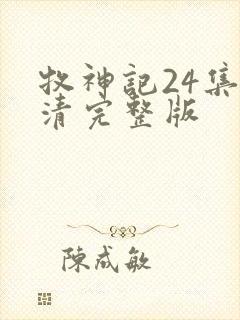 牧神記24集
清完整版
陳咸敏